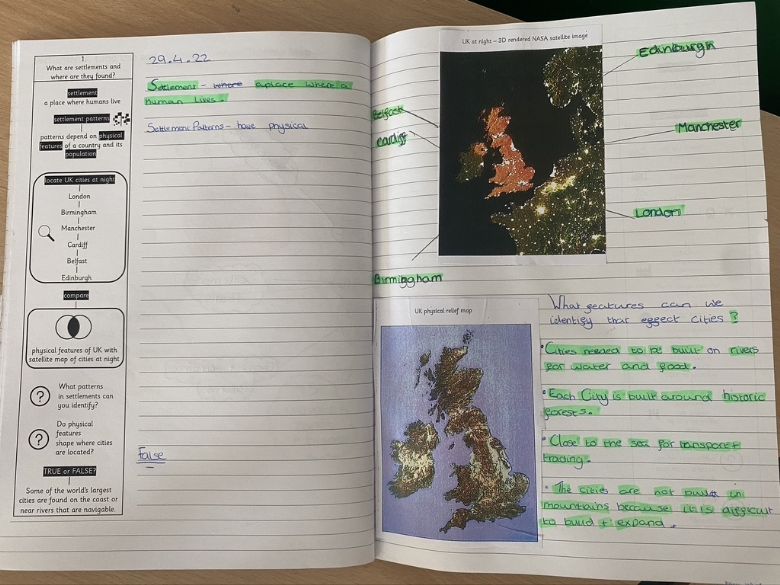 1
What are settlements and
where are they found?
settlement
a place where humans live
settlement patterns
patterns depend on physical
features of a country and its
population
locate UK cities at night
London
Birmingham
Manchester
Cardiff
Belfast
Edinburgh
compare
physical features of UK with
satellite map of cities at night
What patterns
in settlements can
you identify?
Do physical
features
shape where cities
are located?
TRUE or FALSE?
Some of the world's largest
cities are found on the coast or
near rivers that are navigable.
29.4.22
Settlement - where a place where a
human lives.
Settlement Patterns - have physical
False
UK at night – 3D rendered NASA satellite image
Edinburgh
Belfast
Cardiff
Manchester
London
Birmingham
UK physical relief map
What features can we
identify that effect cities?
• Cities needed to be built on rivers
for water and food.
• Each City is built around historic
forests.
• Close to the sea for transport +
trading.
• The cities are not built in
mountains because it is difficult
to build + expand.